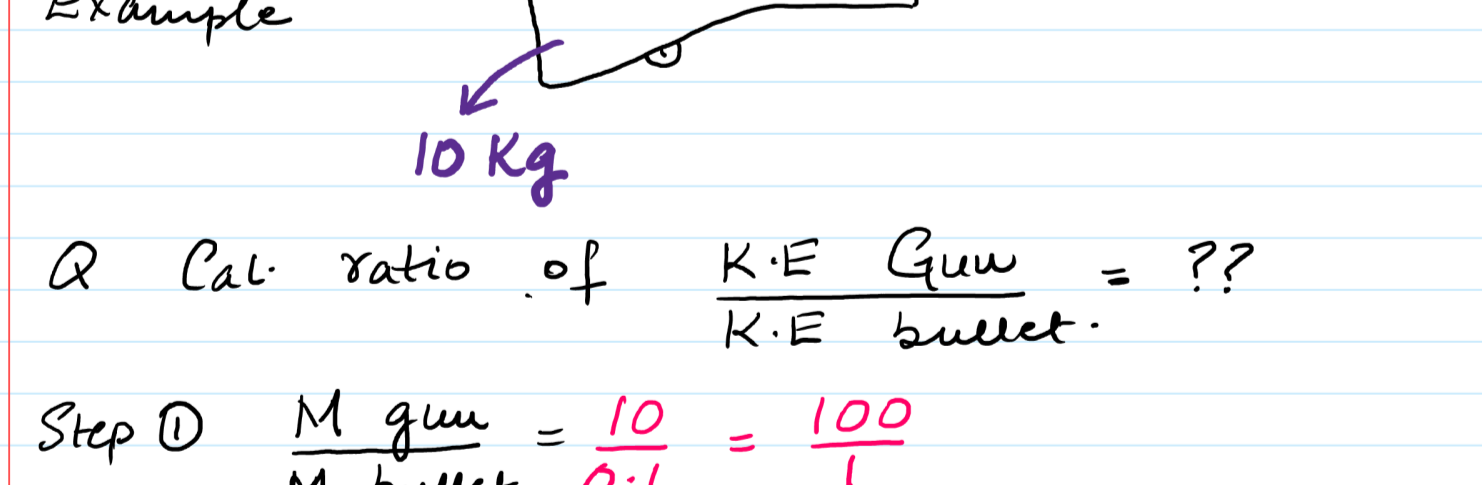 Example
10 Kg
Q Cal. ratio of K.E Gun / K.E bullet. = ??
Step ① M gun / M bullet = 10 / 0.1 = 100 / 1